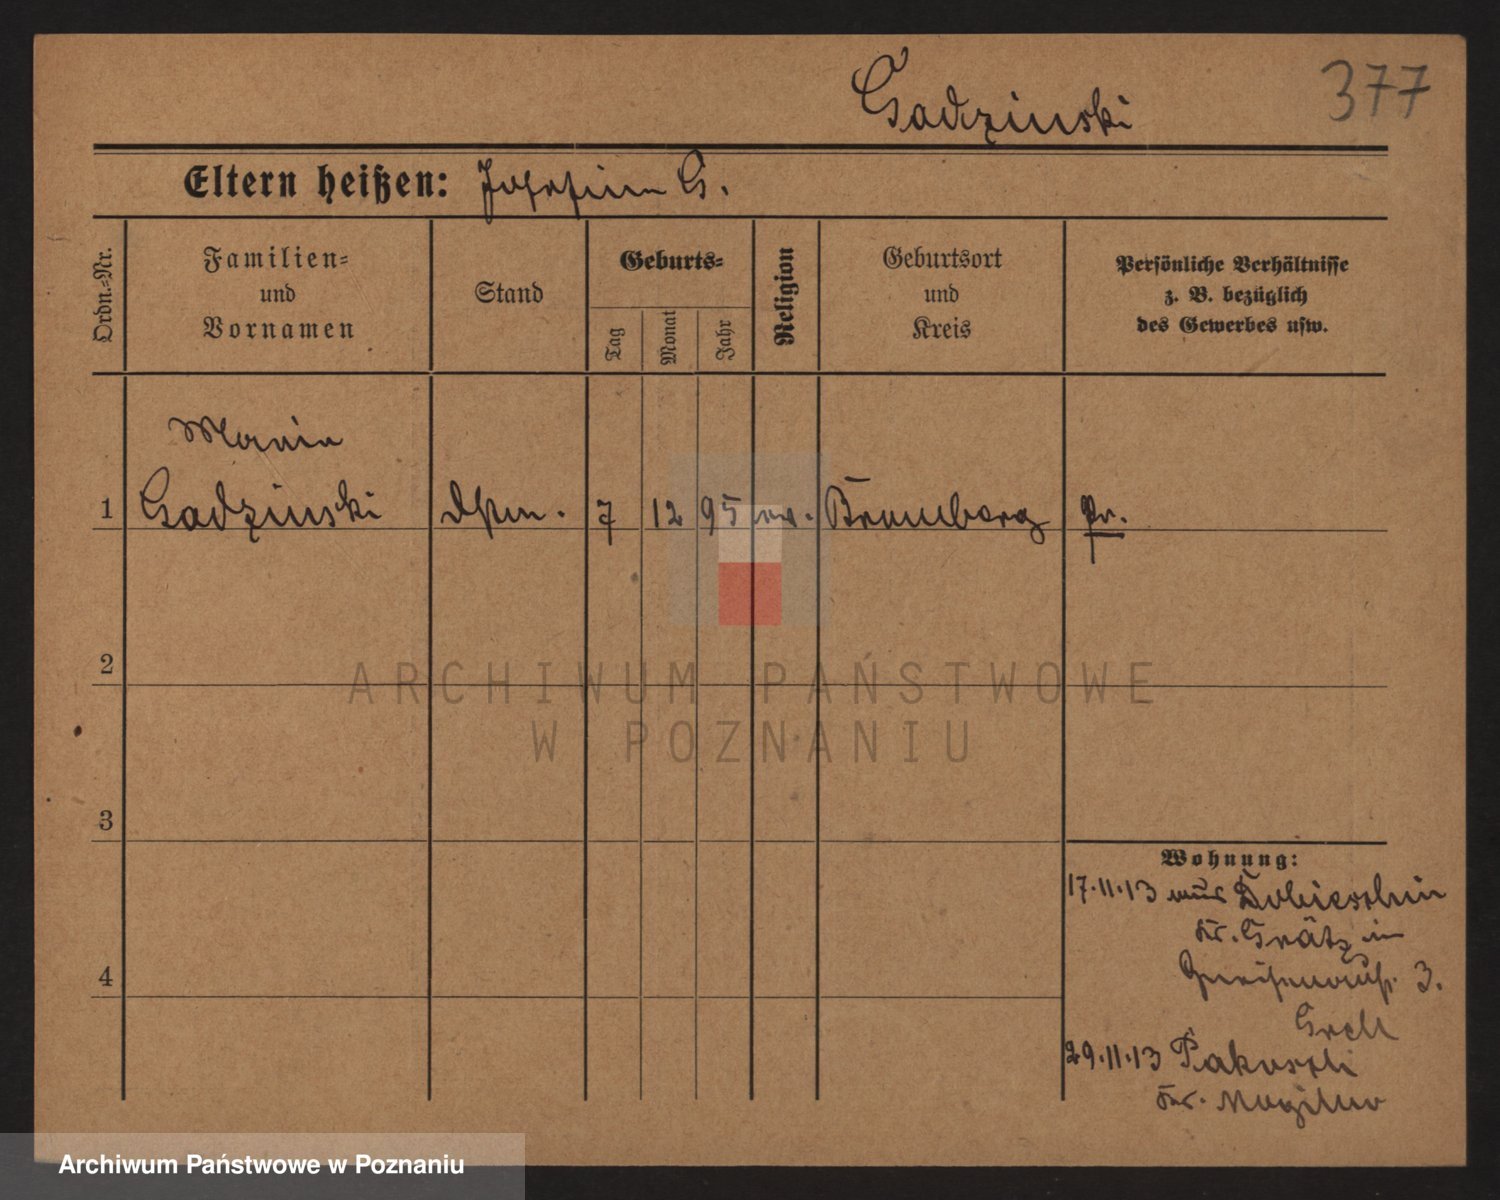 Gadzinski 377
Eltern heißen: Josefine G.
Ordn.-Nr.
Familien-
und
Vornamen
Stand
Geburts-
Tag
Monat
Jahr
Religion
Geburtsort
und
Kreis
Persönliche Verhältnisse
z. B. bezüglich
des Gewerbes usw.
Maria
1 Gadzinski 7 12 95 Bromberg Pr.
2
3
4
Wohnung:
17.11.13 aus
Kr. Grätz in
3.
29.11.13 Pakosch
Kr. Mogilno
ARCHIWUM PAŃSTWOWE
W POZNANIU
Archiwum Państwowe w Poznaniu